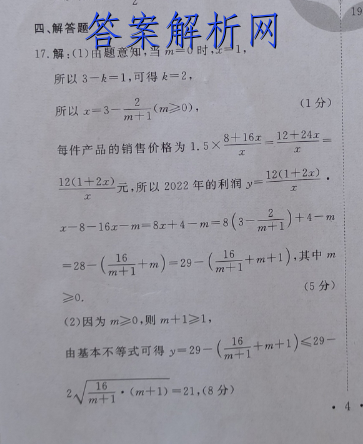 2
19
四、解答题
答案解析网
17.解:(1)由题意知,当m=0时,x=1,
所以3-k=1,可得k=2,
所以x=3-\frac{2}{m+1}(m≥0), (1分)
每件产品的销售价格为1.5×\frac{8+16x}{x}=\frac{12+24x}{x}=
\frac{12(1+2x)}{x}元,所以2022年的利润y=\frac{12(1+2x)}{x}·
x-8-16x-m=8x+4-m=8(3-\frac{2}{m+1})+4-m
=28-(\frac{16}{m+1}+m)=29-(\frac{16}{m+1}+m+1),其中m
≥0. (5分)
(2)因为m≥0,则m+1≥1,
由基本不等式可得y=29-(\frac{16}{m+1}+m+1)≤29-
2\sqrt{\frac{16}{m+1}·(m+1)}=21,(8分)
·4·